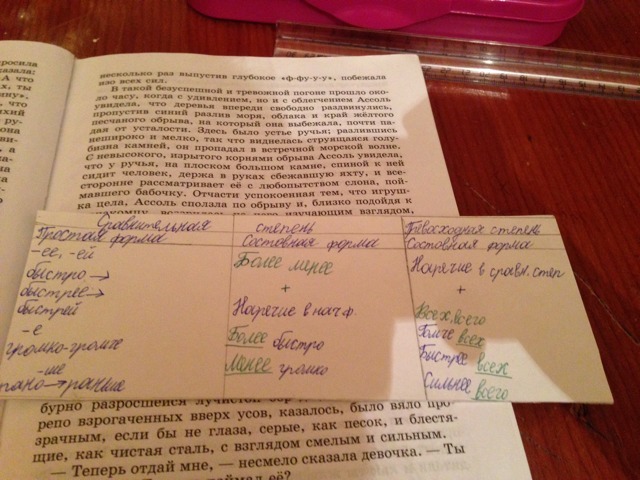 просила
казала:
А что
х, ты
ину».
несколько раз выпустив глубокое «ф-фу-у-у», побежала
изо всех сил.
В такой безуспешной и тревожной погоне прошло око-
ло часу, когда с удивлением, но и с облегчением Ассоль
увидела, что деревья впереди свободно раздвинулись,
пропустив синий разлив моря, облака и край жёлтого
песчаного обрыва, на который она выбежала, почти па-
дая от усталости. Здесь было устье ручья; разлившись
нешироко и мелко, так что виднелась струящаяся голу-
бизна камней, он пропадал в встречной морской волне.
С невысокого, изрытого корнями обрыва Ассоль увидела,
что у ручья, на плоском большом камне, спиной к ней
сидит человек, держа в руках сбежавшую яхту, и все-
сторонне рассматривает её с любопытством слона, пой-
мавшего бабочку. Отчасти успокоенная тем, что игруш-
ка цела, Ассоль сползла по обрыву и, близко подойдя к
изучающим взглядом,
Сравнительная степень
Простая форма
-ее, -ей
быстро →
быстрее →
быстрей
-е
громко-громче
-ше
→ раньше
Составная форма
Более менее
+
Наречие в нач ф.
Более быстро
Менее громко
Превосходная степень
Составная форма
Наречие в сравн. степ
+
Всех, всего
Громче всех
Быстрее всех
Сильнее всего
бурно разросшейся
репо взрогаченных вверх усов, казалось, было вяло про-
зрачным, если бы не глаза, серые, как песок, и блестя-
щие, как чистая сталь, с взглядом смелым и сильным.
— Теперь отдай мне, — несмело сказала девочка. — Ты
поймал её?